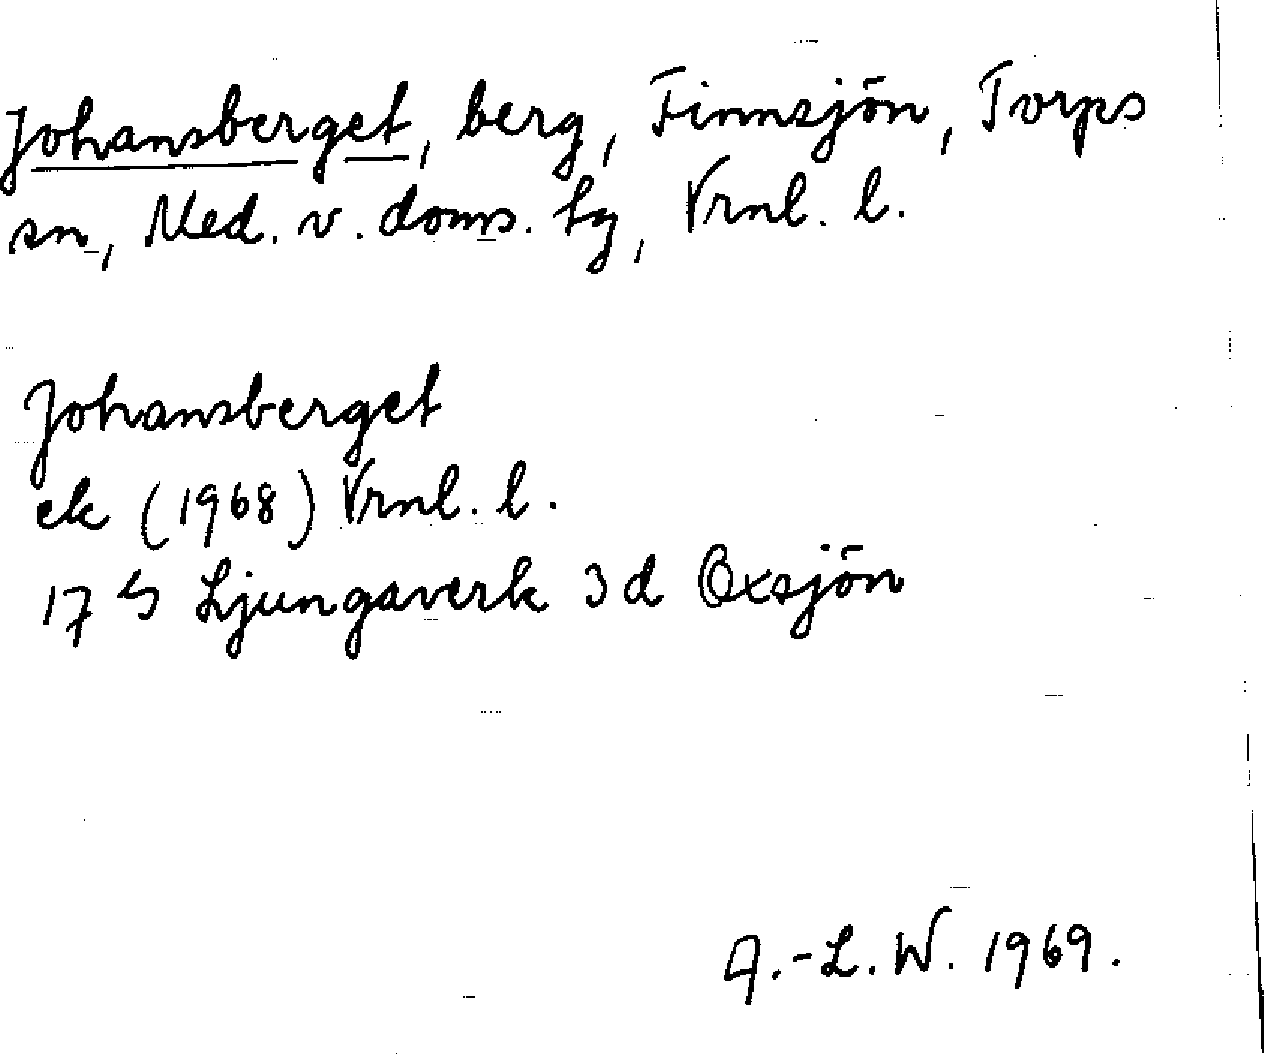 Johansberget, berg, Finnsjön, Torps
sn, Med. v. doms. tg, Vrnl. l.
Johansberget
ek (1968) Vrnl. l.
17 G Ljungaverk 3 d Oxsjön
A.-L. W. 1969.